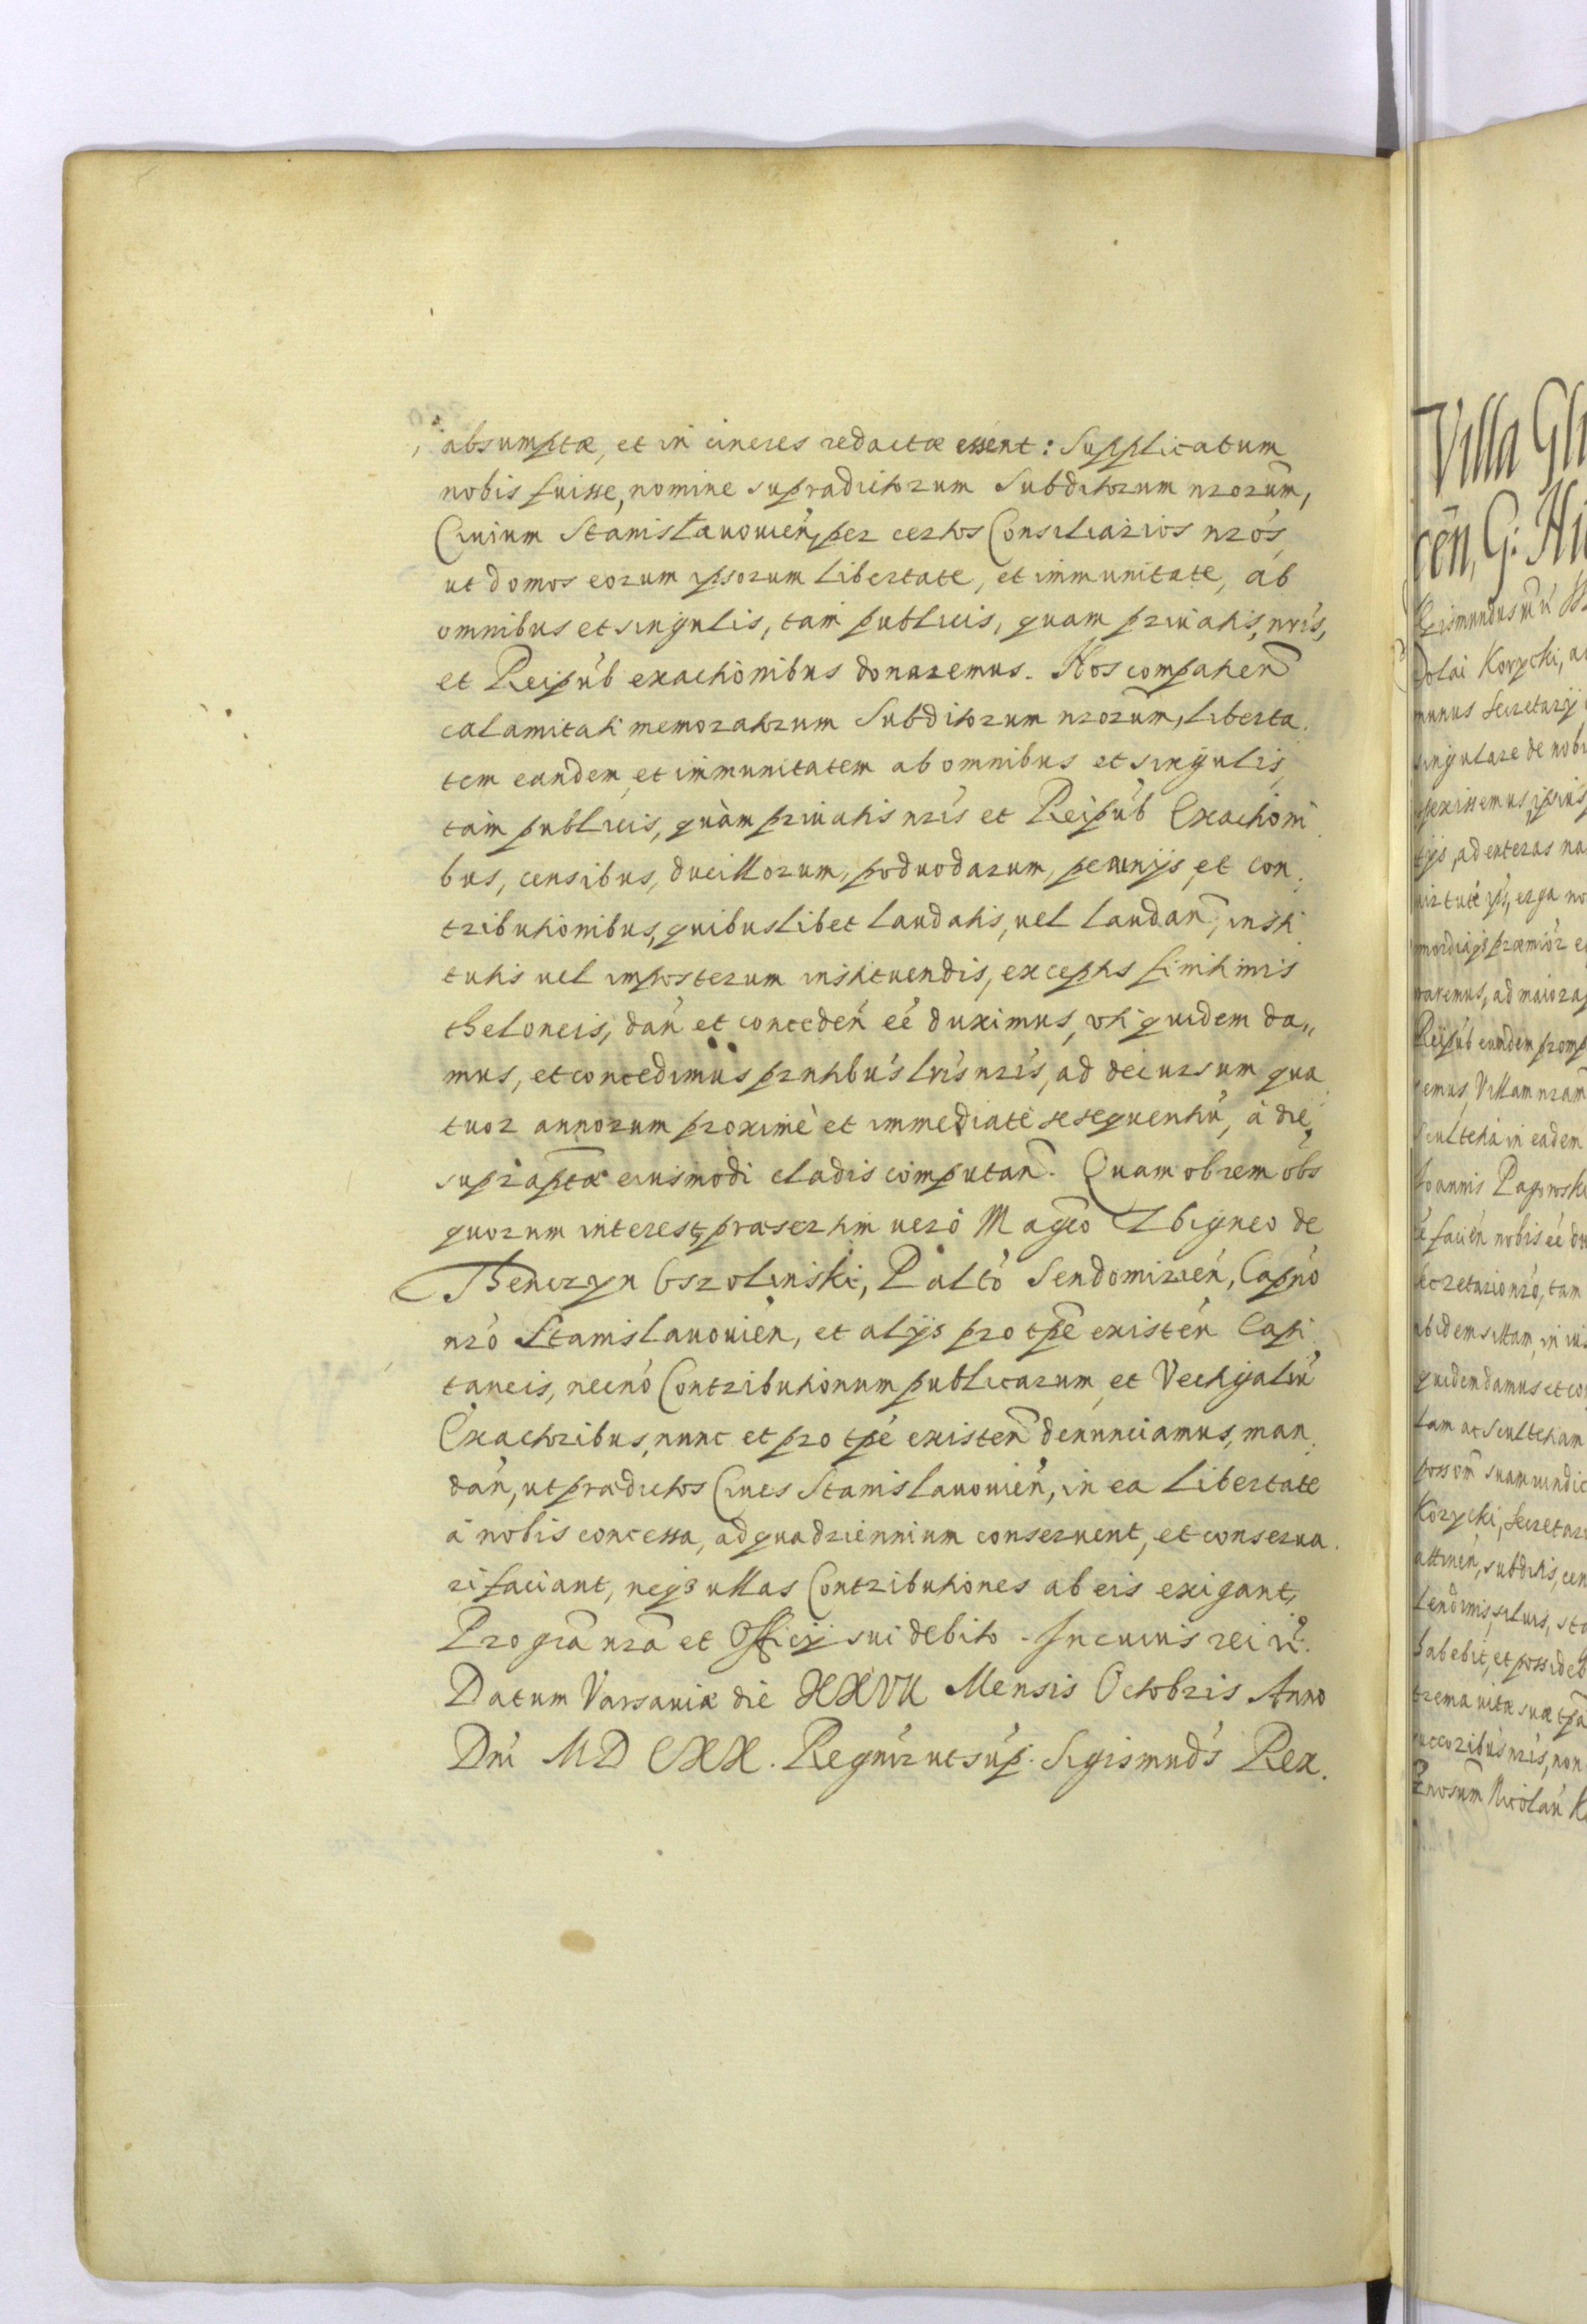 absumptæ, et in cineres redactæ essent: Supplicatum
nobis fuisse, nomine supradictorum Subditorum nrorum,
Ciuium Stanislauouień, per certos Consiliarios nros,
ut domos eorum ipsorum libertate, et immunitate, ab
omnibus et singulis, tam publicis, quam priuatis, nris,
et Reipub exactionibus donaremus. Nos compatien
calamitati memoratorum Subditorum nrorum, liberta
tem eandem, et immunitatem ab omnibus et singulis,
tam publicis, quàm priuatis nris et Reipub Exactioni
bus, censibus, ducillorum, poduodarum, pecunijs, et con
tributionibus, quibuslibet laudatis, uel laudan, insti
tutis uel imposterum instituendis, exceptis finitimis
theloneis, dan et conceden eé duximus, uti quidem da„
mus, et concedimus pntibus lris nris, ad decursum qua
tuor annorum proximè et immediatè sesequentiu, à die
supraptæ eiusmodi cladis computan. Quam obrem obs
quorum interest, præsertim uero Magco Zbigneo de
Thenczyn Oszolinski, Palto Sendomirień, Capno
nro Stanislauouień, et alijs pro tpe existen Capi
taneis, necno Contributionum publicarum, et Vectigaliu
Exactoribus, nunc et pro tpe existen denunciamus, man
dan, ut prædictos Ciues Stanislauouień, in ea libertate
à nobis concessa, ad quadriennium conseruent, et conserua
ri faciant, neqз ullas Contributiones ab eis exigant,
Pro gra nra et Officij sui debito. In cuius rei
Datum Varsauiæ die XXVII Mensis Octobris Anno
Dni MDCXX. Regnor ut sup. Sigismuds Rex.
Villa
cen, G:
dolai Korycki,
munus Secretarij
singulare de
ad exteras
erga
ad
Reipub eundem
Villam nram
in eadem
Joannis
facien nobis eé
tam
ibidem sitam, in
quidem damus et
Korycki,
attinen, subditis,
habebit, et
non